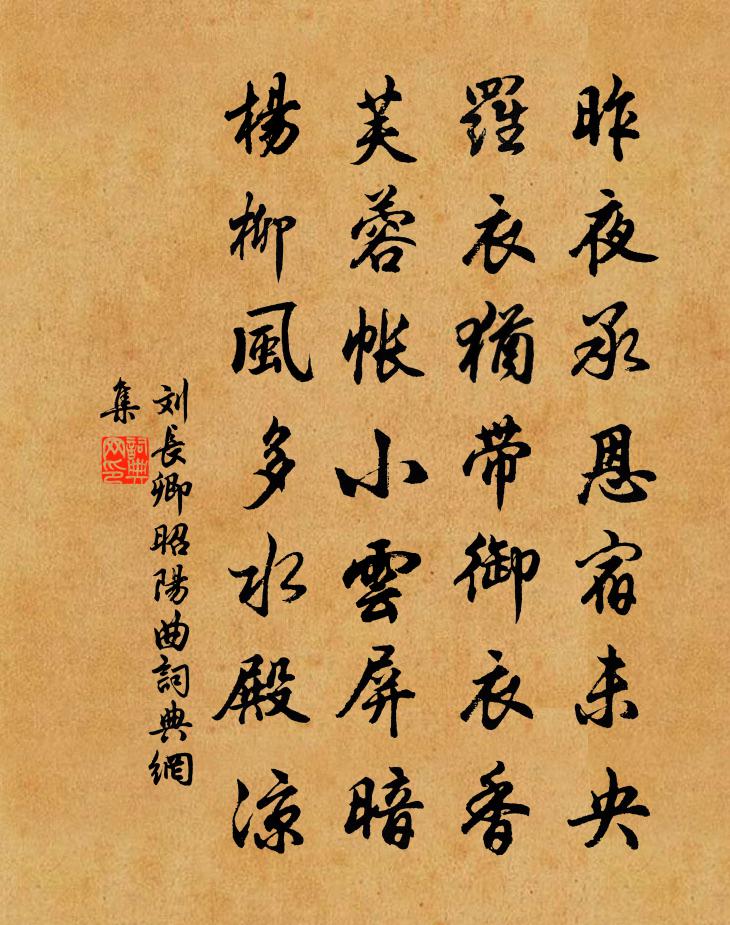 昨夜承恩宿未央
羅衣猶帶御衣香
芙蓉帳小雲屏暗
楊柳風多水殿涼
刘長卿昭陽曲詞典網
集
詞典網印